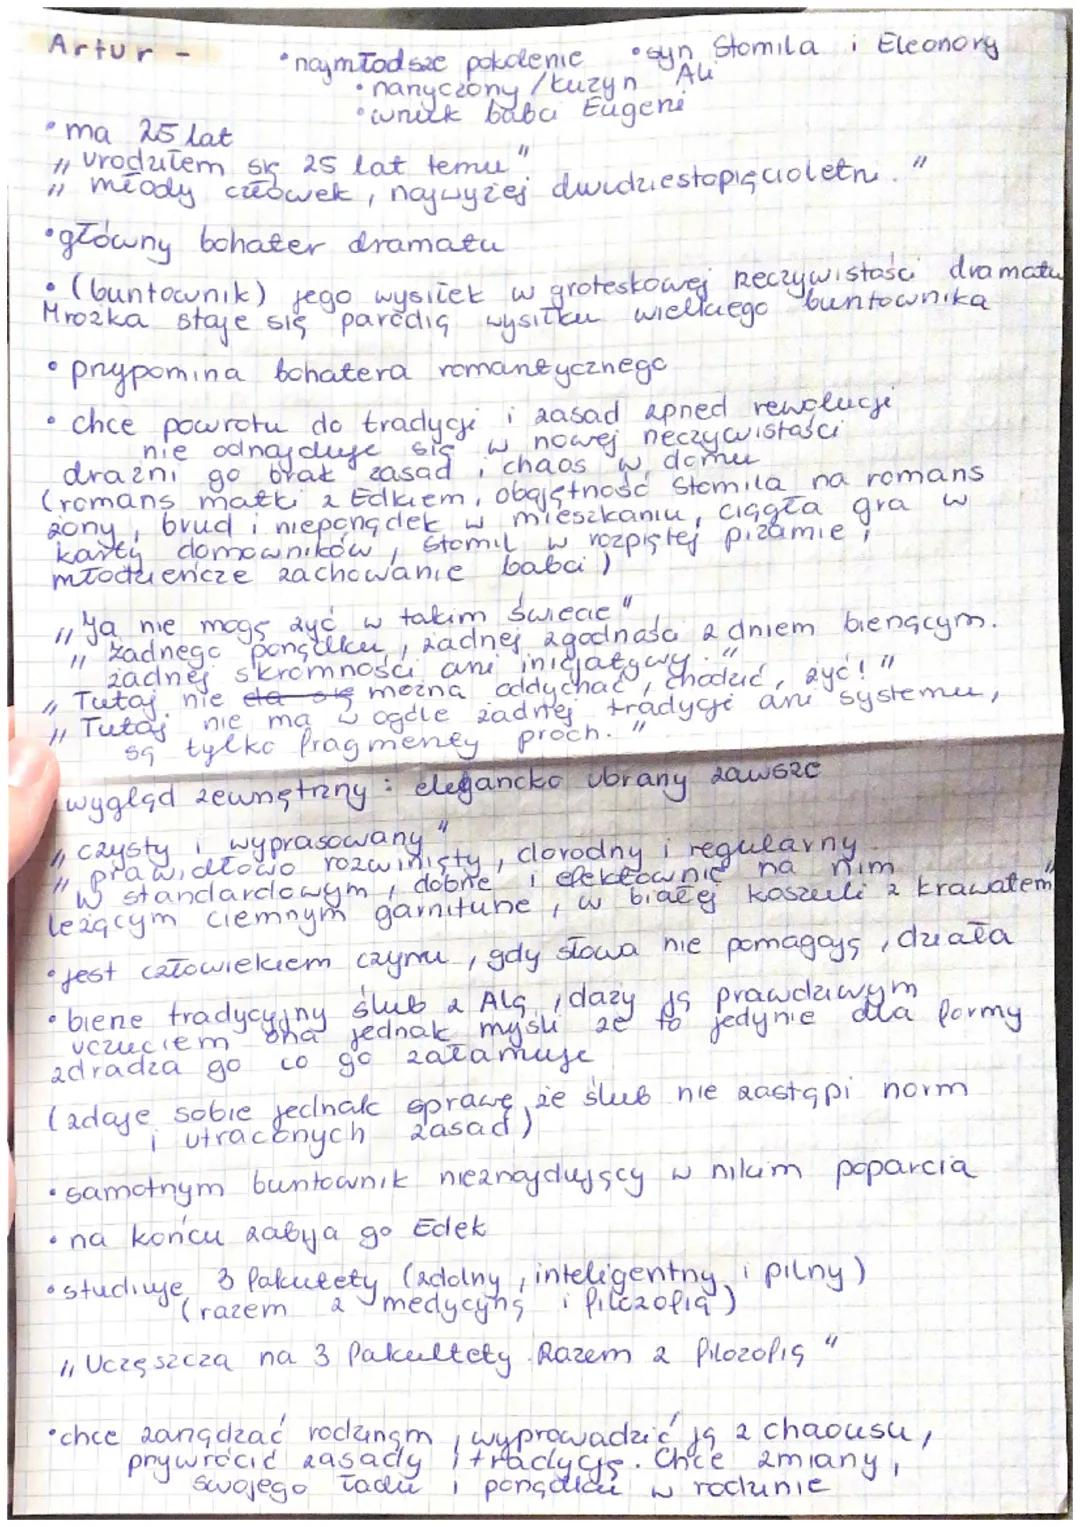 Artur -
• najmłodsze pokolenie • syn Stomila i Eleonory
• narzyczony / kuzyn Ali
• wnuk babci Eugenii
• ma 25 lat
" urodziłem się 25 lat temu"
" młody człowiek, najwyżej dwudziestopięcioletni."
• główny bohater dramatu
• (buntownik) jego wysiłek w groteskowej rzeczywistości dramatu
Mrożka staje się parodią wysiłku wielkiego buntownika
• przypomina bohatera romantycznego
• chce powrotu do tradycji i zasad zprzed rewolucji
nie odnajduje się w nowej rzeczywistości
drażni go brak zasad i chaos w domu
(romans matki z Edkiem, obojętność Stomila na romans
żony, brud i nieporządek w mieszkaniu, ciągła gra w
karty domowników, Stomil w rozpiętej piżamie,
młodzieńcze zachowanie babci)
" Ja nie mogę żyć w takim świecie"
" Żadnego porządku, żadnej zgodności z dniem bieżącym.
żadnej skromności ani inicjatywy."
" Tutaj nie da się można oddychać, chodzić, żyć!"
" Tutaj nie ma w ogóle żadnej tradycji ani systemu,
są tylko fragmenty proch."
wygląd zewnętrzny: elegancko ubrany zawsze
" czysty i wyprasowany"
" prawidłowo rozwinięty, dorodny i regularny.
W standardowym, dobrze i efektownie na nim
leżącym ciemnym garniturze, w białej koszuli z krawatem"
• jest człowiekiem czynu, gdy słowa nie pomagają, działa
• bierze tradycyjny ślub z Alą, daży ją prawdziwym
uczuciem ona jednak myśli że to jedynie dla formy
zdradza go co go załamuje
(zdaje sobie jednak sprawę, że ślub nie zastąpi norm
i utraconych zasad)
• samotnym buntownik nieznajdujący w nikim poparcia
• na końcu zabija go Edek
• studiuje 3 fakultety (zdolny, inteligentny i pilny)
(razem z medycyną i filozofią)
" Uczęszcza na 3 fakultety. Razem z filozofią"
• chce zarządzać rodzinąm, wyprowadzić ją z chaousu,
przywrócić zasady i tradycję. Chce zmiany,
swojego ładu i porządku w rodzinie